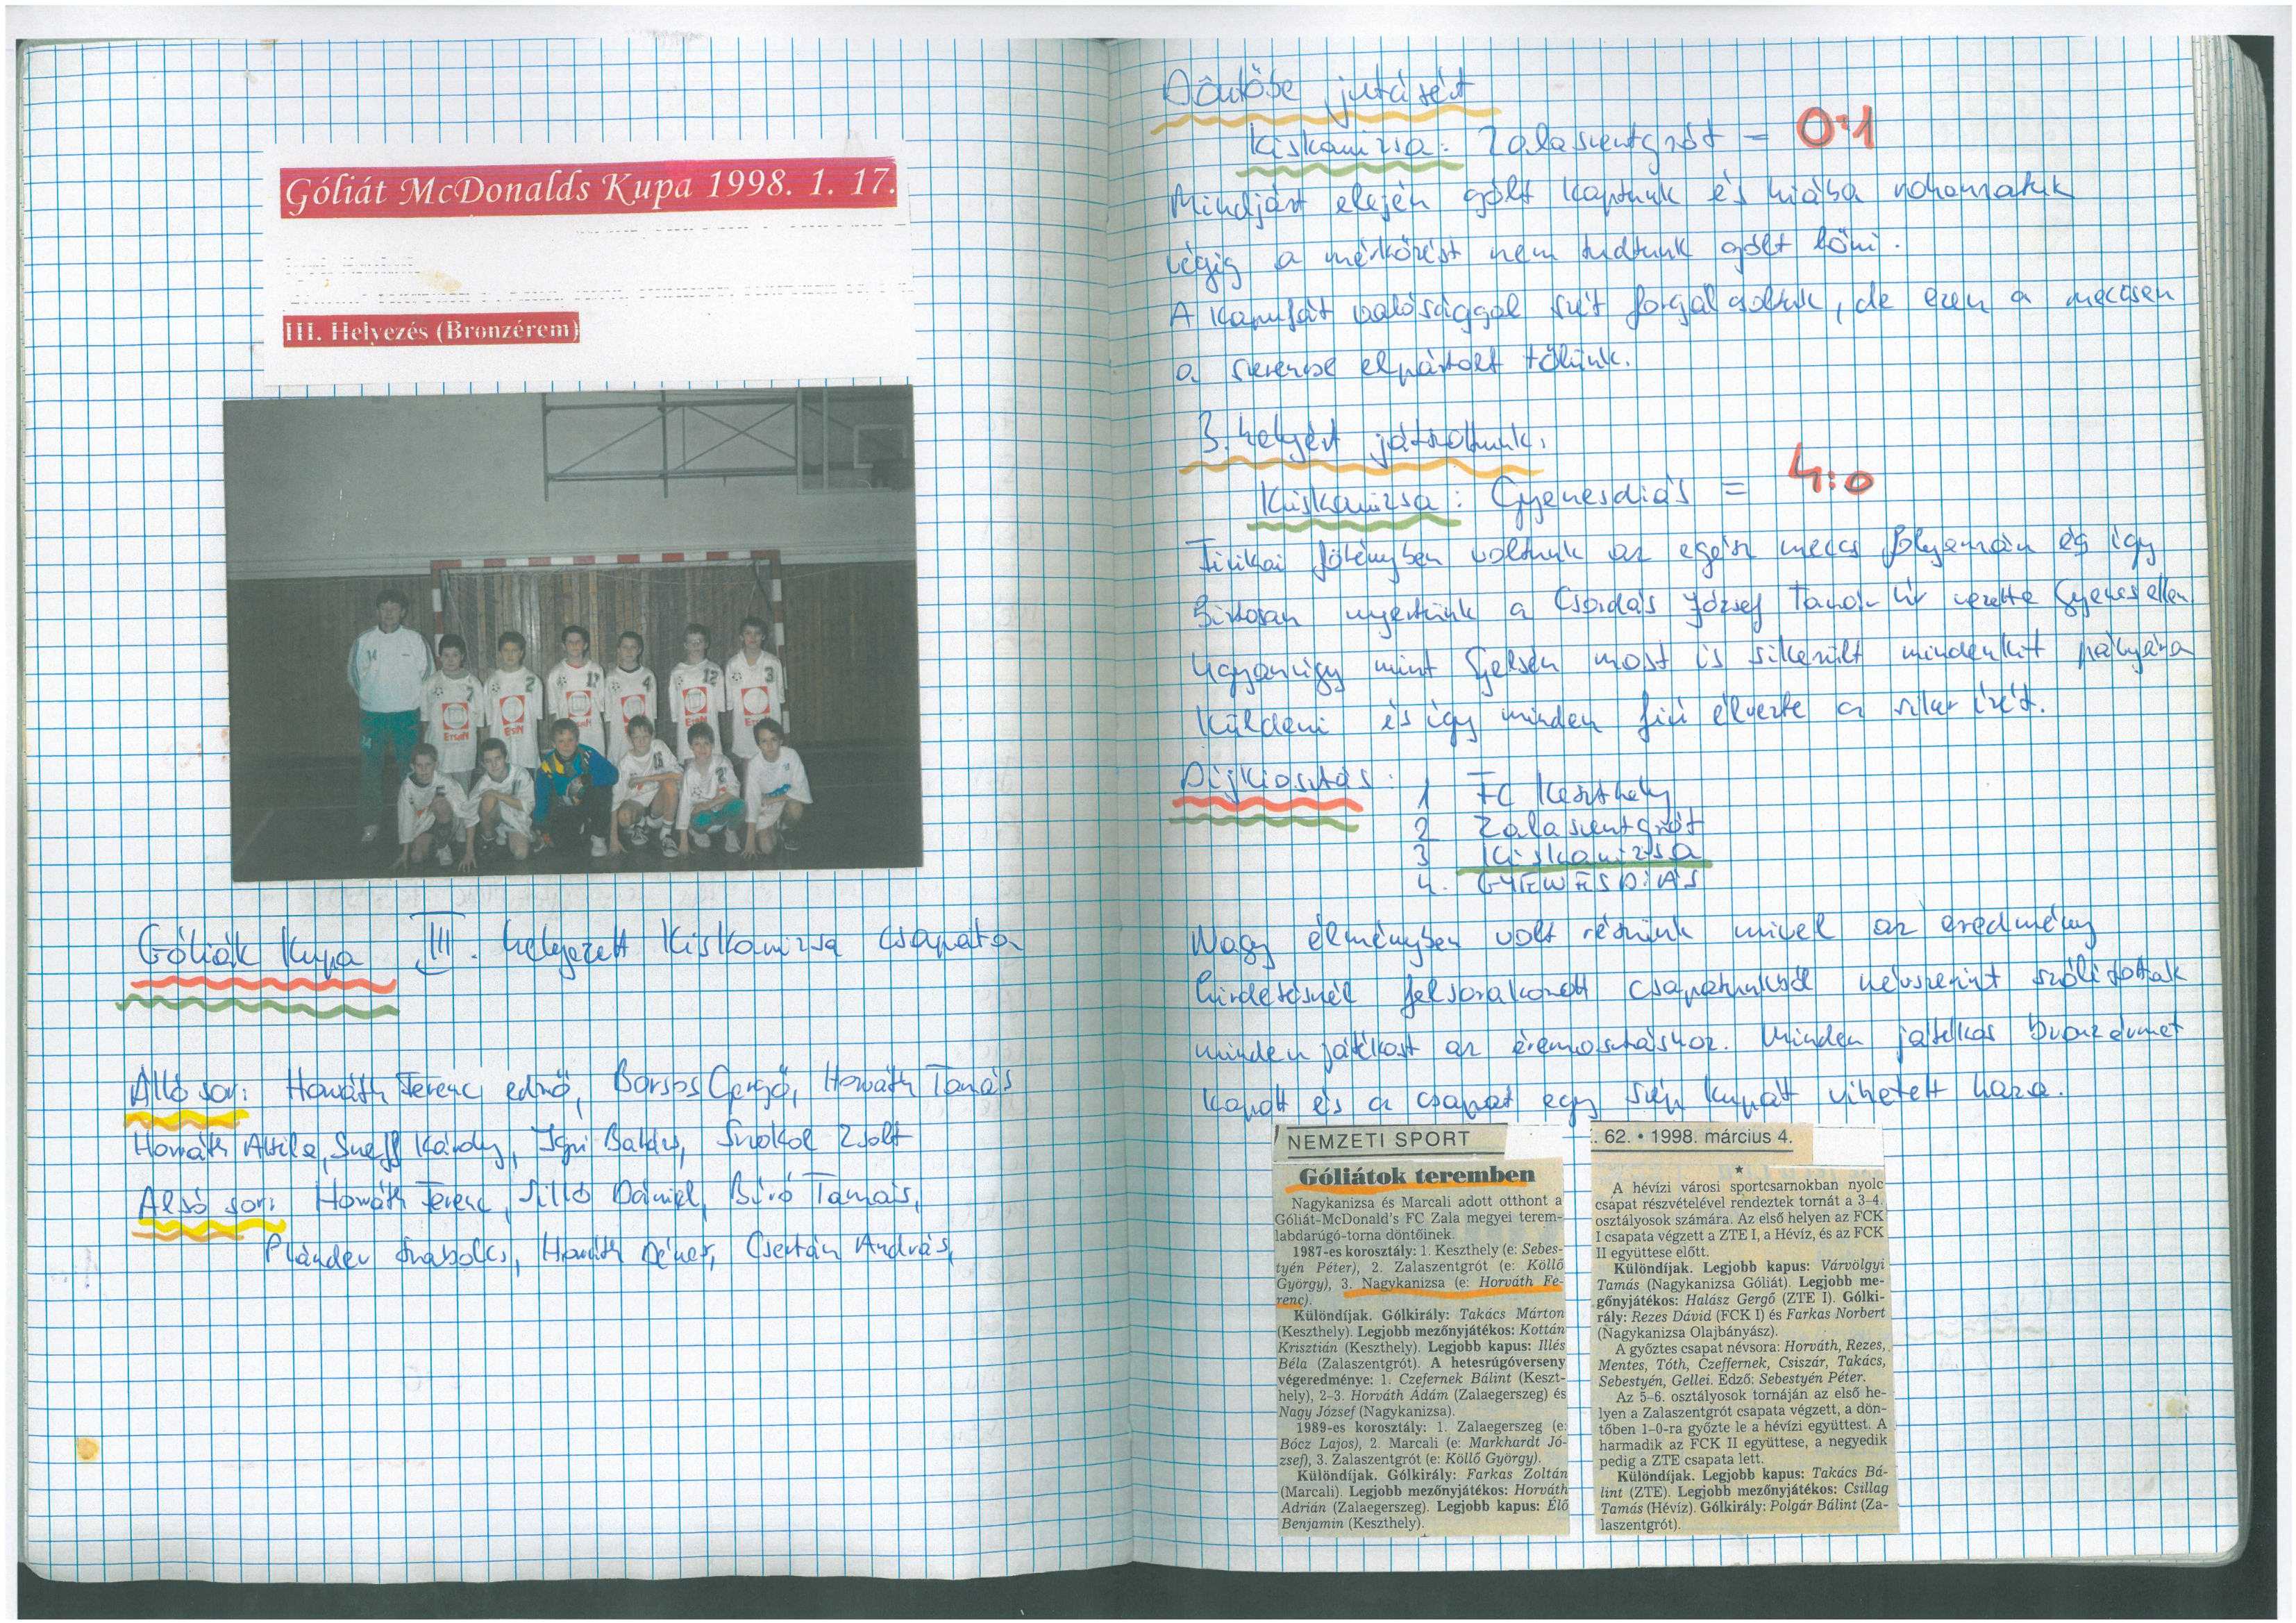 Góliát McDonalds Kupa 1998. 1. 17.
III. Helyezés (Bronzérem)
Góliák Kupa III. helyezett Kiskanizsa csapata
Álló sor: Horváth Ferenc edző, Borsos Gergő, Horváth Tamás
Horváth Attila, Károly, Balázs, Zsolt
Alsó sor: Horváth Ferenc, Sillő Dániel, Bíró Tamás,
Plánder Szabolcs, Horváth Dénes, Csertán András,
Döntőbe jutásért
Kiskanizsa: Zalaszentgrót = 0:1
Mindjárt elején gólt kaptunk és hiába rohamoztuk
végig a mérkőzést nem tudtunk gólt lőni.
A kapufát valósággal szét forgácsoltuk, de ezen a meccsen
a szerencse elpártolt tőlünk.
3. helyért játszottunk.
Kiskanizsa: Gyenesdiás = 4:0
Fizikai fölényben voltunk az egész meccs folyamán és így
biztosan nyertünk a Csordás József Tanár Úr vezette Gyenes ellen
ugyanúgy mint Gelsén most is sikerült mindenkit pályára
küldeni és így minden fiú élvezte a siker ízét.
Díjkiosztás: 1 FC Keszthely
2 Zalaszentgrót
3 Kiskanizsa
4. GYENESDIÁS
Nagy élményben volt részünk mivel az eredmény
hirdetésnél felsorakozott csapatunkból névszerint szólítottak
minden játékost az éremosztáshoz. Minden játékos bronzérmet
kapott és a csapat egy szép kupát vihetett haza.
NEMZETI SPORT
Góliátok teremben
Nagykanizsa és Marcali adott otthont a
Góliát-McDonald's FC Zala megyei terem-
labdarúgó-torna döntőinek.
1987-es korosztály: 1. Keszthely (e: Sebes-
tyén Péter), 2. Zalaszentgrót (e: Köllő
György), 3. Nagykanizsa (e: Horváth Fe-
renc).
Különdíjak. Gólkirály: Takács Márton
(Keszthely). Legjobb mezőnyjátékos: Kottán
Krisztián (Keszthely). Legjobb kapus: Illés
Béla (Zalaszentgrót). A hetesrúgóverseny
végeredménye: 1. Czefernek Bálint (Keszt-
hely), 2-3. Horváth Ádám (Zalaegerszeg) és
Nagy József (Nagykanizsa).
1989-es korosztály: 1. Zalaegerszeg (e:
Bócz Lajos), 2. Marcali (e: Markhardt Jó-
zsef), 3. Zalaszentgrót (e: Köllő György).
Különdíjak. Gólkirály: Farkas Zoltán
(Marcali). Legjobb mezőnyjátékos: Horváth
Adrián (Zalaegerszeg). Legjobb kapus: Élő
Benjamin (Keszthely).
. 62. • 1998. március 4.
A hévízi városi sportcsarnokban nyolc
csapat részvételével rendeztek tornát a 3-4.
osztályosok számára. Az első helyen az FCK
I csapata végzett a ZTE I, a Hévíz, és az FCK
II együttese előtt.
Különdíjak. Legjobb kapus: Várvölgyi
Tamás (Nagykanizsa Góliát). Legjobb me-
gőnyjátékos: Halász Gergő (ZTE I). Gólki-
rály: Rezes Dávid (FCK I) és Farkas Norbert
(Nagykanizsa Olajbányász).
A győztes csapat névsora: Horváth, Rezes,
Mentes, Tóth, Czeffernek, Csiszár, Takács,
Sebestyén, Gellei. Edző: Sebestyén Péter.
Az 5-6. osztályosok tornáján az első he-
lyen a Zalaszentgrót csapata végzett, a dön-
tőben 1-0-ra győzte le a hévízi együttest. A
harmadik az FCK II együttese, a negyedik
pedig a ZTE csapata lett.
Különdíjak. Legjobb kapus: Takács Bá-
lint (ZTE). Legjobb mezőnyjátékos: Csillag
Tamás (Hévíz). Gólkirály: Polgár Bálint (Za-
laszentgrót).